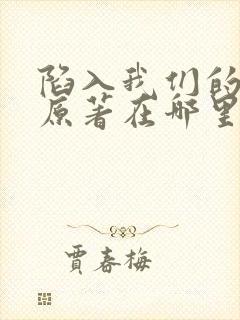 陷入我们的
原著在哪里
贾春梅